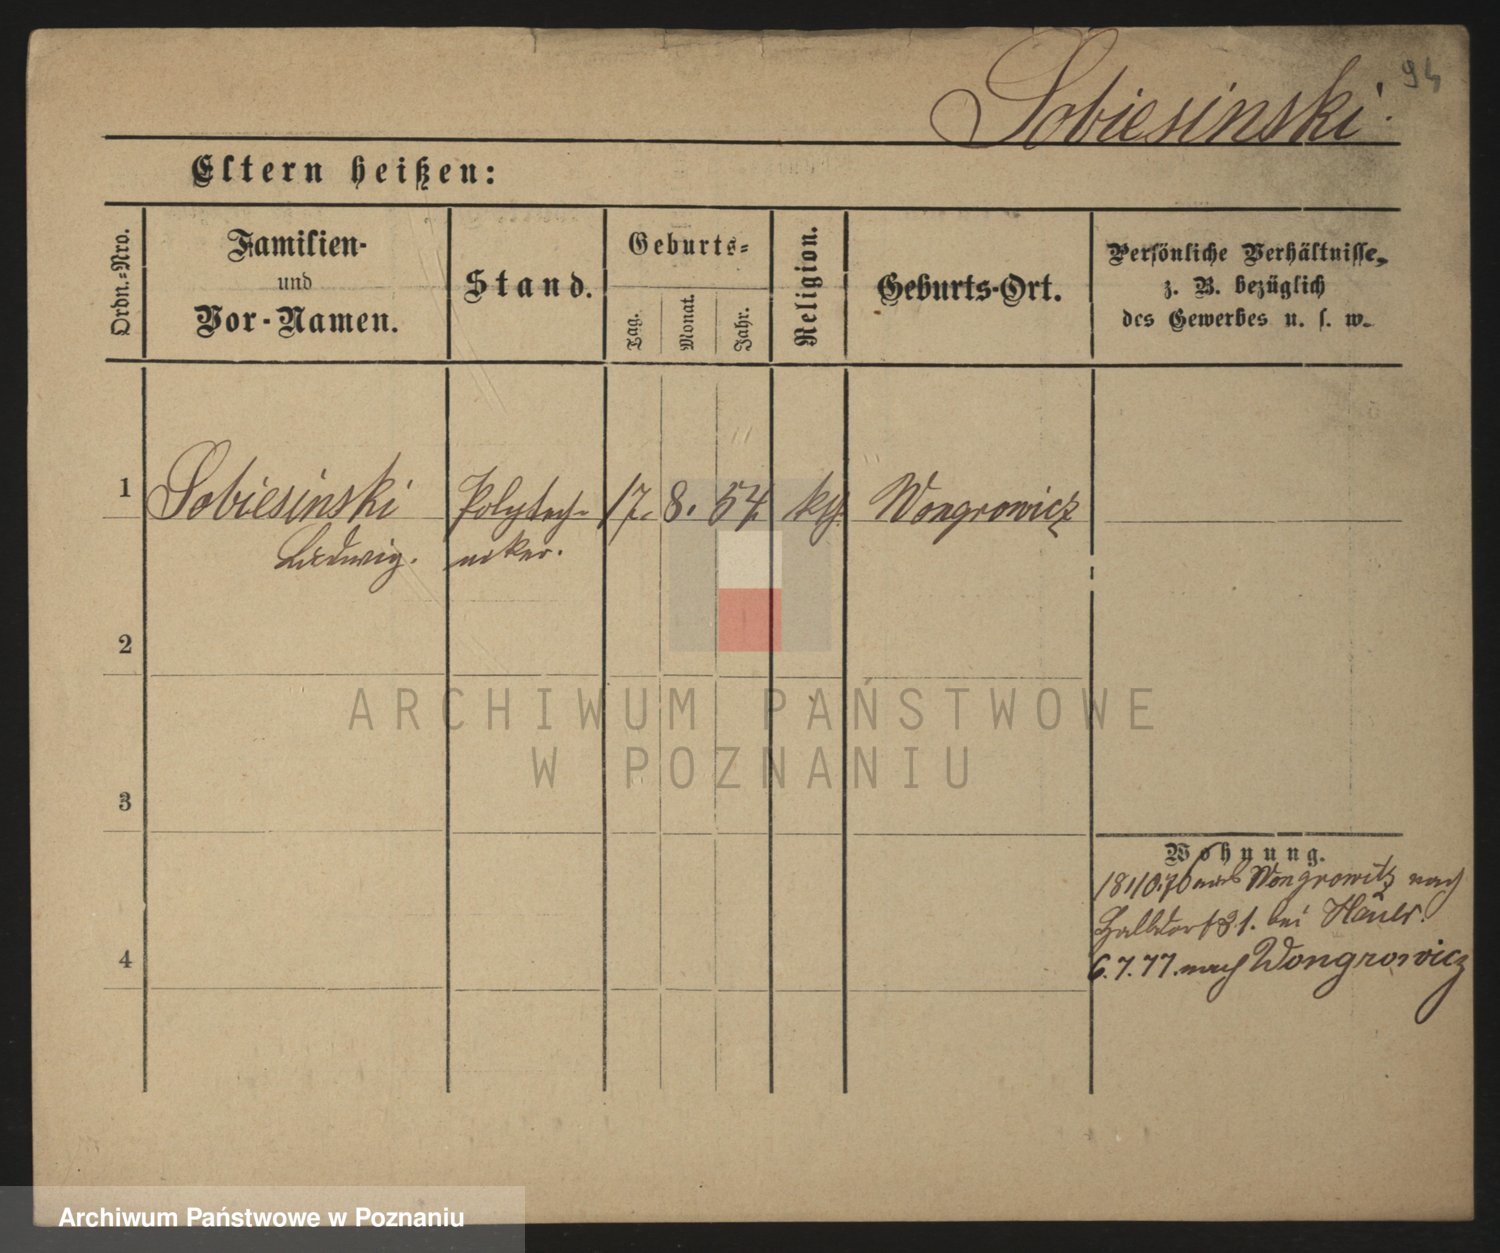 94
Sobiesinski.
Eltern heißen:
Ordn.-Nro.
Familien-
und
Vor-Namen.
Stand.
Geburts-
Tag.
Monat.
Jahr.
Religion.
Geburts-Ort.
Persönliche Verhältnisse,
z. B. bezüglich
des Gewerbes u. s. w.
1 Sobiesinski Polytech- 17. 8. 54 kth. Wongrowicz
Ludwig. niker.
2
3
4
Wohnung.
18/10.76 aus Wongrowitz nach
Halbdorfst 31. bei
6.7.77. nach Wongrowicz
ARCHIWUM PAŃSTWOWE
W POZNANIU
Archiwum Państwowe w Poznaniu